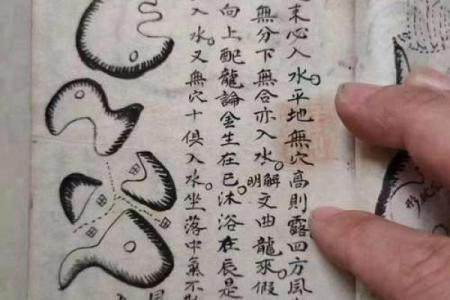 末心入水。平地無穴高則露四方風
無分下無合亦入水。解明文曲龍來假
向上配龍論金生在巳。沐浴在辰是
入水又無穴十俱入水。坐落中氣不